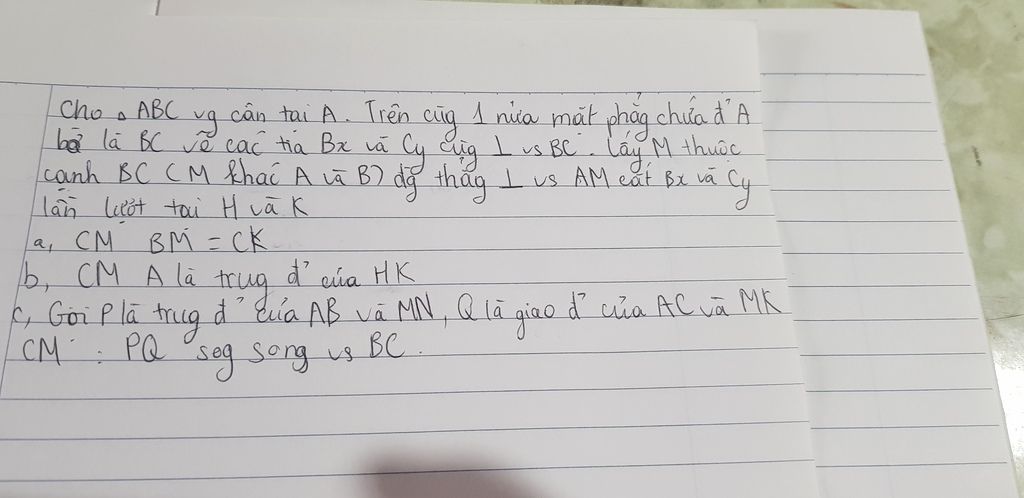 Cho △ ABC vg cân tại A. Trên cùg 1 nửa mặt phẳg chứa đ' A
bờ là BC vẽ các tia Bx và Cy cùg ⊥ vs BC. Lấy M thuộc
cạnh BC (M khác A và B) đg thẳg ⊥ vs AM cắt Bx và Cy
lần lượt tại H và K
a, CM BM = CK
b, CM A là trug đ' của HK
c, Gọi P là trug đ' của AB và MN, Q là giao đ' của AC và MK
CM : PQ sog song vs BC.